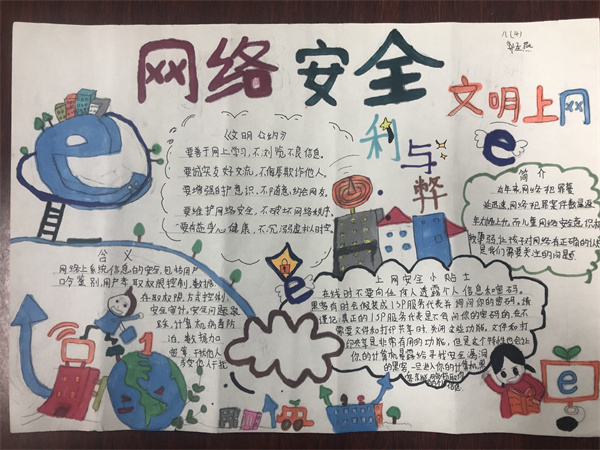 八(4)
网络安全
文明上网
利与弊
《文明公约》
要善于网上学习,不浏览不良信息。
要诚实友好交流,不侮辱欺诈他人。
要增强自护意识,不随意约会网友。
要维护网络安全,不破坏网络秩序。
要有益身心健康,不沉溺虚拟时空。
简介
近年来网络犯罪案
网络犯罪案件数量逐
年
是我们需要关注的问题
含义
网络上系统信息的安全,包括用户
口令鉴别,用户存取权限控制,数据
存取权限,方式控制,
安全审计,安全问题跟
踪,计算机病毒防
治,数据加
密等
上网安全小贴士
在线时不要向任何人透露个人信息和密码。
黑客有时会假装成ISP服务代表并询问你的密码。请
谨记:真正的ISP服务代表是不会问你的密码的。在不
需要文件和打印共享时,关闭这些功能。文件和打
印共享是非常有用的功能,但是这个特性也会让
你的计算机暴露给寻找安全漏洞
的黑客。一旦进入你的计算机,黑
e
e
e
e
1